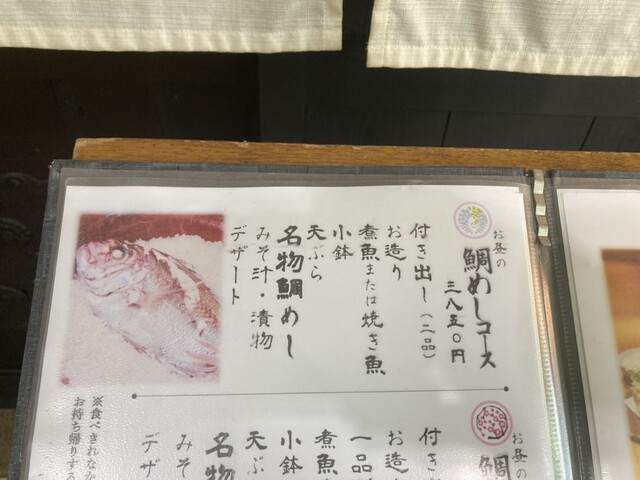 お昼の
鯛めしコース
三八五〇円
付き出し（二品）
お造り
煮魚または焼き魚
小鉢
天ぷら
名物鯛めし
みそ汁・漬物
デザート
お昼の
鯛
付き
お造
一品
煮魚
小鉢
天ぷ
名物
みそ
デザ
※食べきれなか
お持ち帰りする